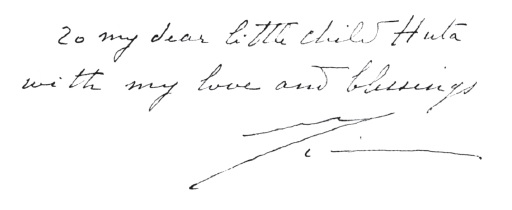 To my dear little child Huta
with my love and blessings